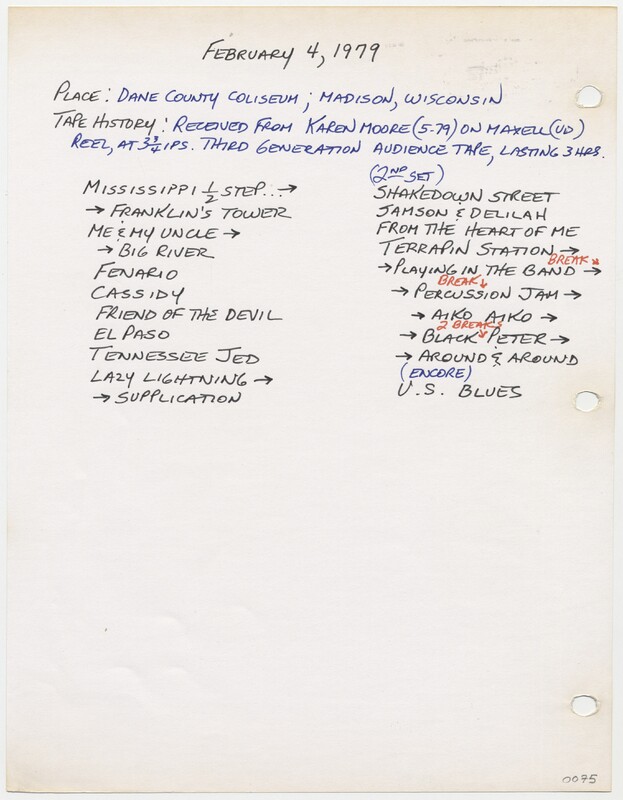 FEBRUARY 4, 1979
PLACE: DANE COUNTY COLISEUM; MADISON, WISCONSIN
TAPE HISTORY: RECEIVED FROM KAREN MOORE (5-79) ON MAXELL (UD)
REEL, AT 3 3/4 IPS. THIRD GENERATION AUDIENCE TAPE, LASTING 3 HRS.
MISSISSIPPI 1/2 STEP... →
→ FRANKLIN'S TOWER
ME & MY UNCLE →
→ BIG RIVER
FENARIO
CASSIDY
FRIEND OF THE DEVIL
EL PASO
TENNESSEE JED
LAZY LIGHTNING →
→ SUPPLICATION
(2ND SET)
SHAKEDOWN STREET
JAMSON & DELILAH
FROM THE HEART OF ME
TERRAPIN STATION →
BREAK ↘
→ PLAYING IN THE BAND →
BREAK ↓
→ PERCUSSION JAM →
→ AIKO AIKO →
2 BREAKS ↘
→ BLACK PETER →
→ AROUND & AROUND
(ENCORE)
U.S. BLUES
0075